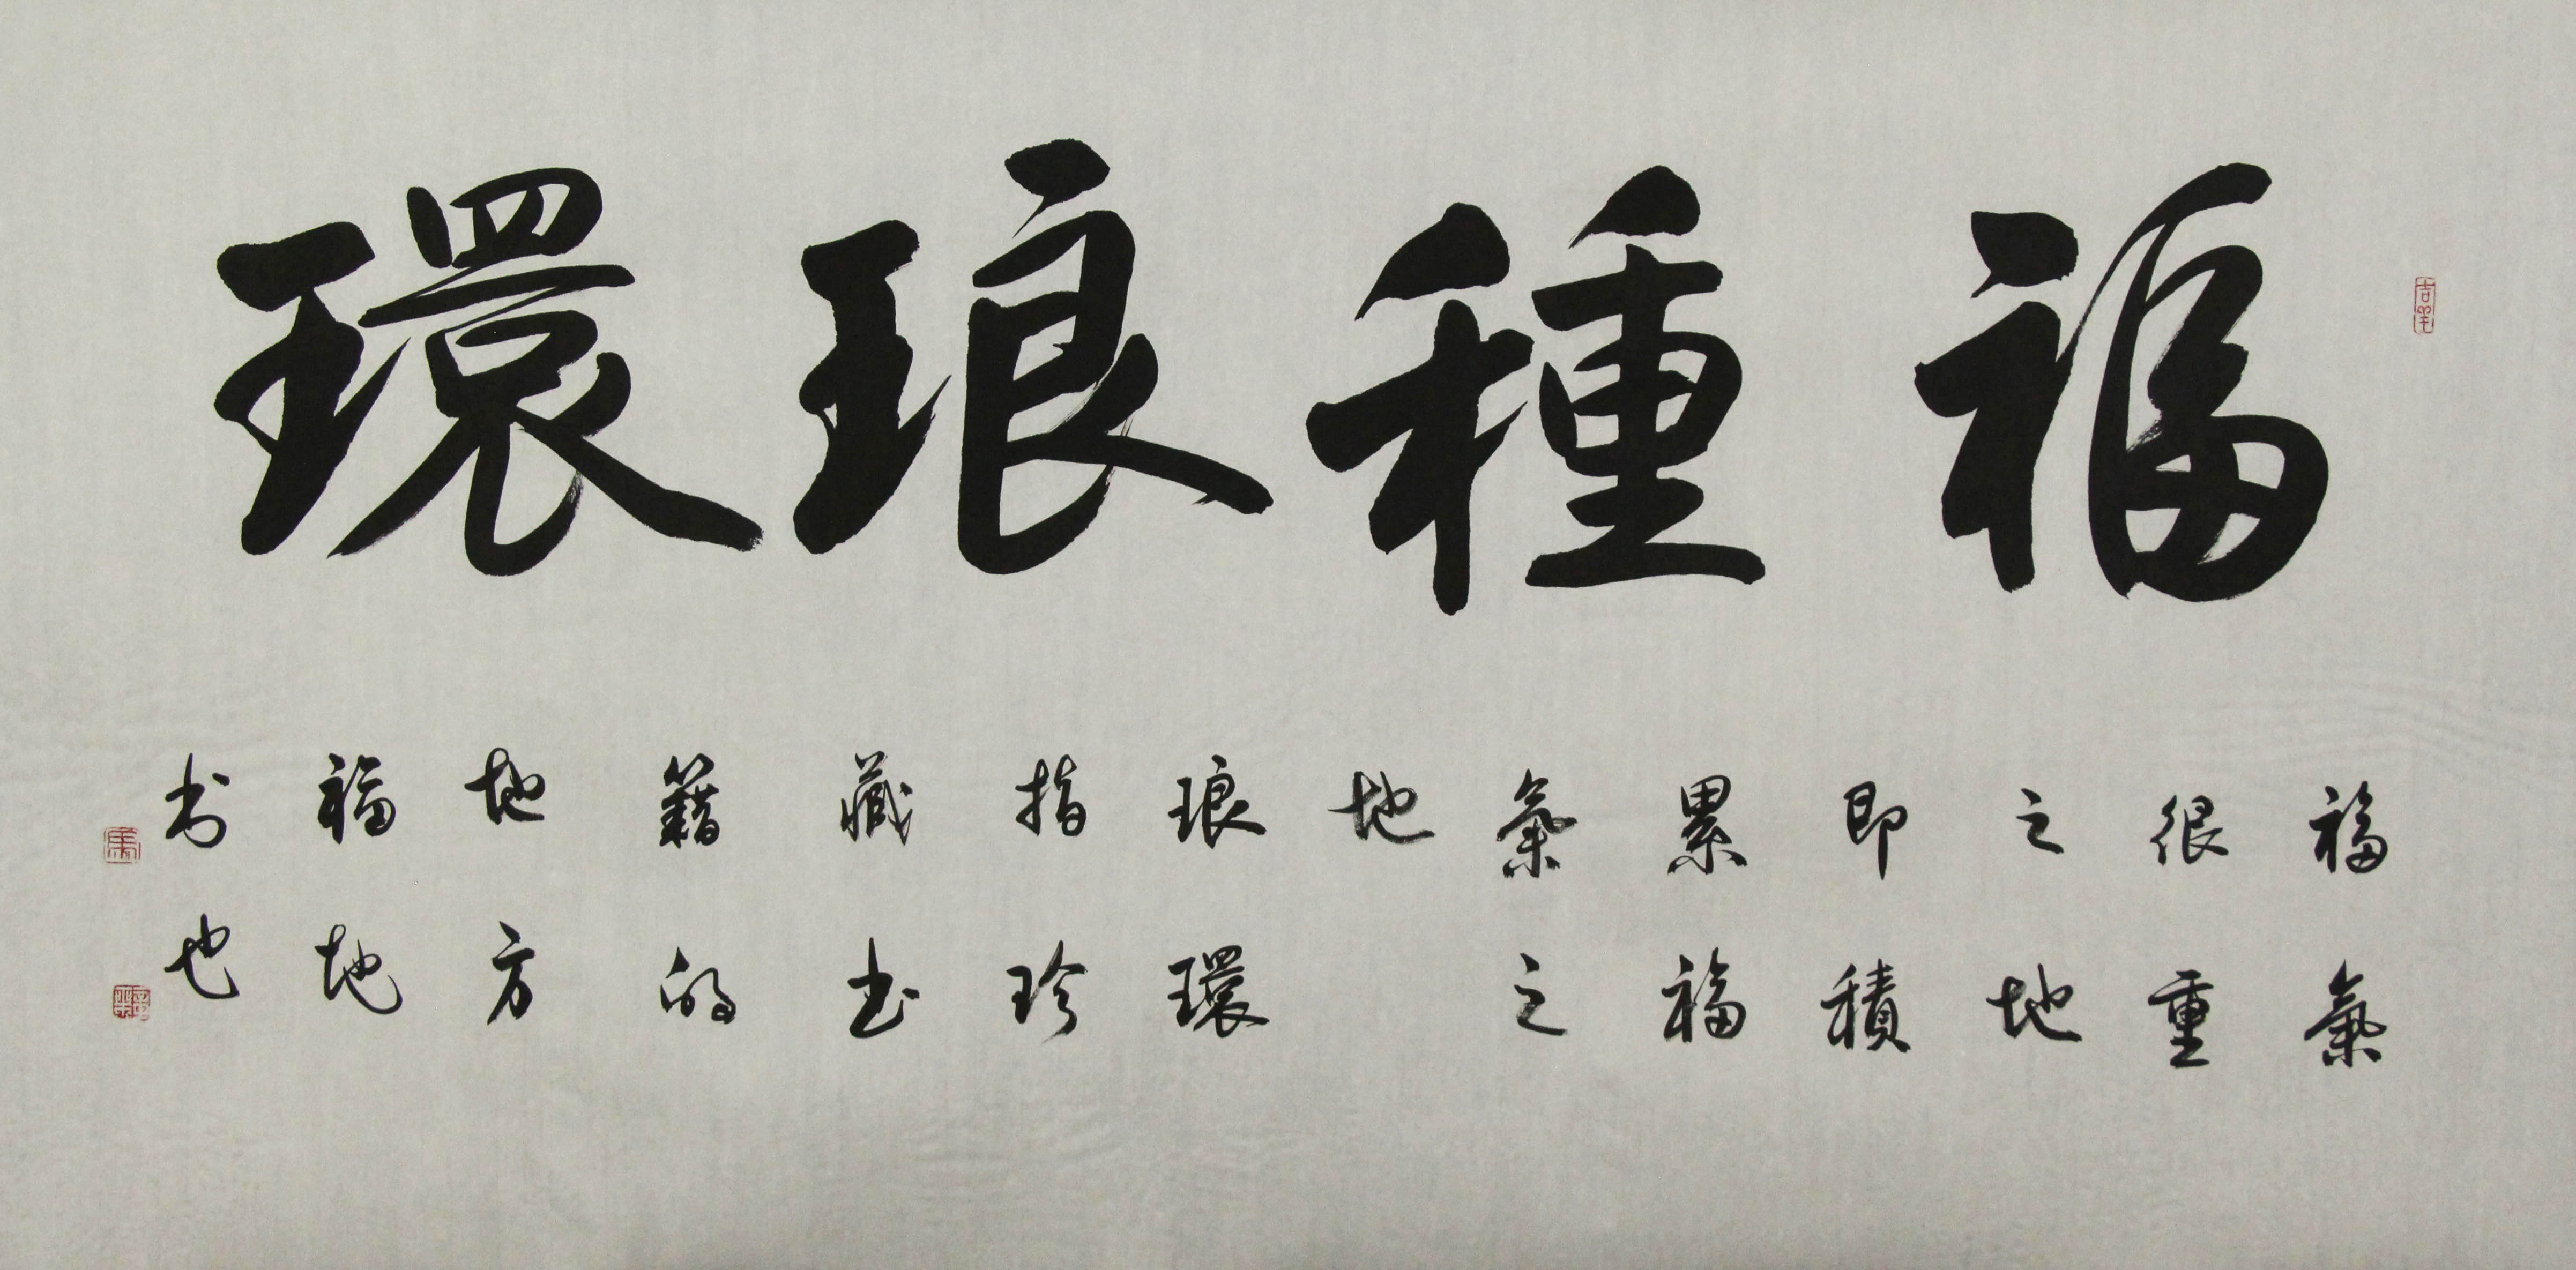 吉羊
福種琅環
福氣
很重
之地
即積
累福
氣之
地
琅環
指珍
藏书
籍的
地方
福地
书也